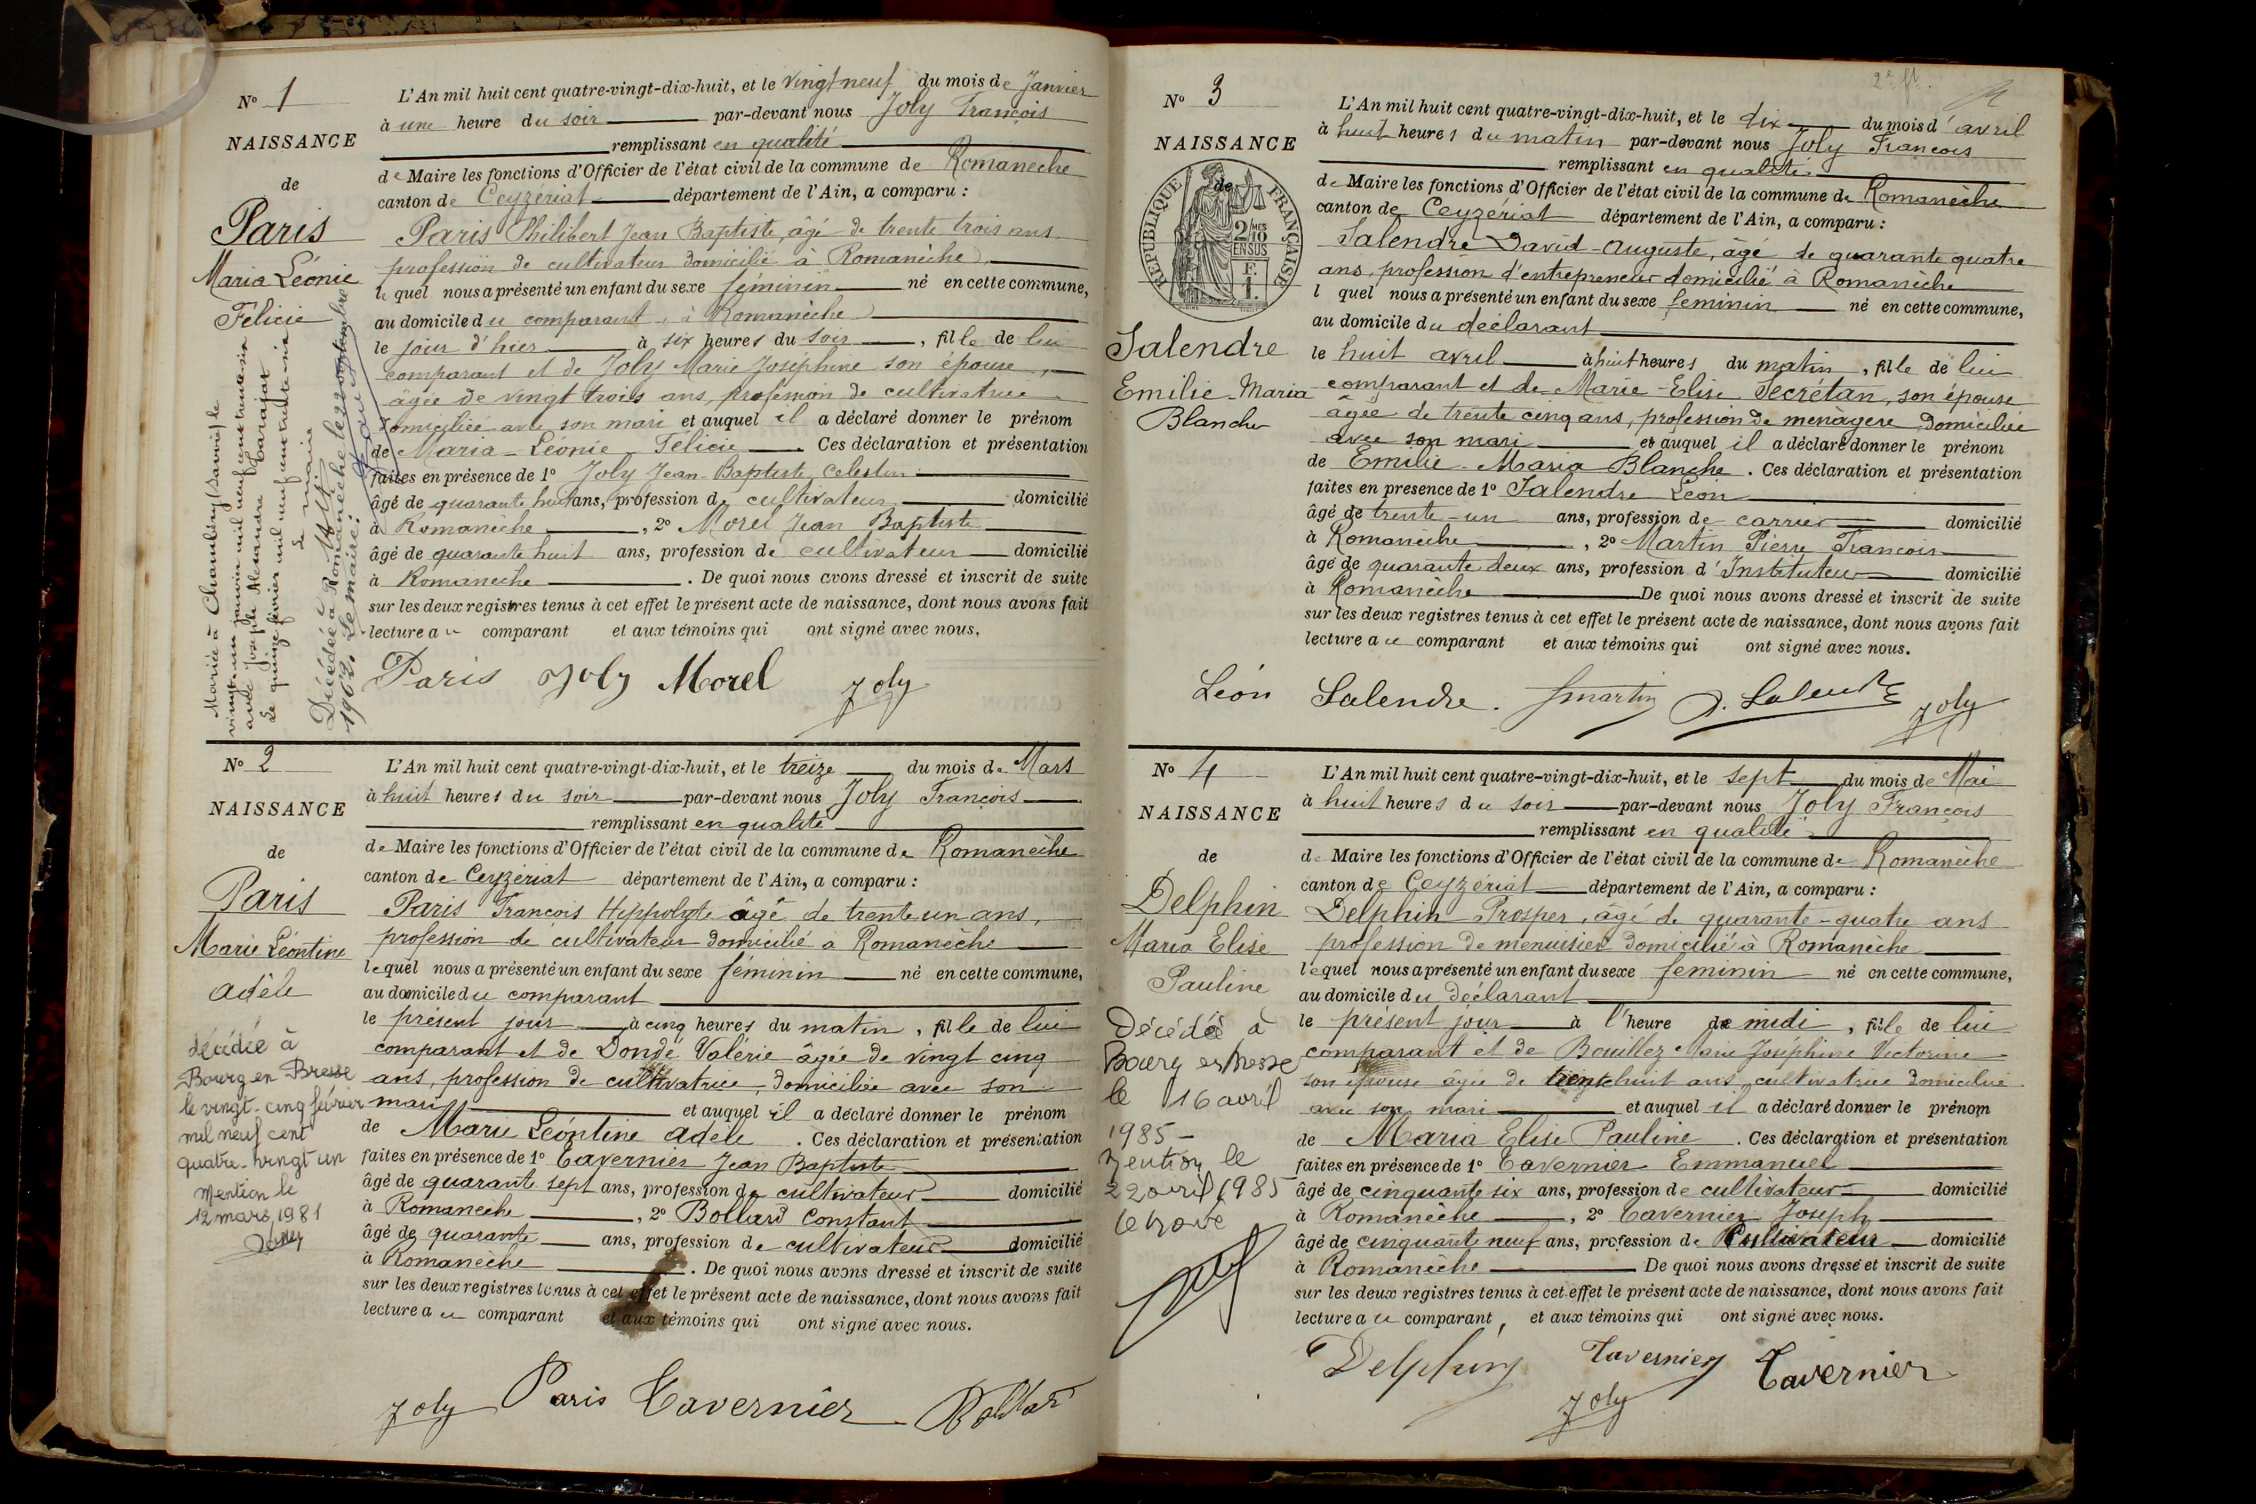 No 1
NAISSANCE
de
Paris
Maria Léonie
Félicie
Mariée à Chambéry (Savoie) le
vingt-un janvier mil neuf cent trente-un
avec Joseph Alexandre Tarajat
Le quinze février mil neuf cent trente-un
Le maire
Décédée à Romanèche le
1962. Le maire:
L'An mil huit cent quatre-vingt-dix-huit, et le vingt neuf du mois de Janvier
à une heure du soir par-devant nous Joly François
remplissant en qualité
de Maire les fonctions d'Officier de l'état civil de la commune de Romanèche
canton de Ceyzériat département de l'Ain, a comparu :
Paris Philibert Jean Baptiste, âgé de trente trois ans
profession de cultivateur domicilié à Romanèche
lequel nous a présenté un enfant du sexe féminin né en cette commune,
au domicile du comparant, à Romanèche
le jour d'hier à six heures du soir, fille de lui
comparant et de Joly Marie Joséphine son épouse,
âgée de vingt trois ans, profession de cultivatrice
domiciliée avec son mari et auquel il a déclaré donner le prénom
de Maria-Léonie-Félicie. Ces déclaration et présentation
faites en présence de 1° Joly Jean-Baptiste Celestin
âgé de quarante huit ans, profession de cultivateur domicilié
à Romanèche, 2° Morel Jean Baptiste
âgé de quarante huit ans, profession de cultivateur domicilié
à Romanèche. De quoi nous avons dressé et inscrit de suite
sur les deux registres tenus à cet effet le présent acte de naissance, dont nous avons fait
lecture au comparant et aux témoins qui ont signé avec nous.
Paris Joly Morel Joly
No 2
NAISSANCE
de
Paris
Marie Léontine
Adèle
décédée à
Bourg en Bresse
le vingt-cinq février
mil neuf cent
quatre-vingt un
Mention le
12 mars 1981
L'An mil huit cent quatre-vingt-dix-huit, et le treize du mois de Mars
à huit heures du soir par-devant nous Joly François
remplissant en qualité
de Maire les fonctions d'Officier de l'état civil de la commune de Romanèche
canton de Ceyzériat département de l'Ain, a comparu :
Paris François Hippolyte âgé de trente un ans,
profession de cultivateur domicilié à Romanèche
lequel nous a présenté un enfant du sexe féminin né en cette commune,
au domicile du comparant
le présent jour à cinq heures du matin, fille de lui
comparant et de Dondé Valérie âgée de vingt cinq
ans, profession de cultivatrice, domiciliée avec son
mari et auquel il a déclaré donner le prénom
de Marie Léontine Adèle. Ces déclaration et présentation
faites en présence de 1° Tavernier Jean Baptiste
âgé de quarante sept ans, profession de cultivateur domicilié
à Romanèche, 2° Bollard Constant
âgé de quarante ans, profession de cultivateur domicilié
à Romanèche. De quoi nous avons dressé et inscrit de suite
sur les deux registres tenus à cet effet le présent acte de naissance, dont nous avons fait
lecture au comparant et aux témoins qui ont signé avec nous.
Joly Paris Tavernier Bollard
2e ft.
No 3
NAISSANCE
de
RÉPUBLIQUE FRANÇAISE
2/10 MES
EN SUS
Salendre
Emilie-Maria
Blanche
L'An mil huit cent quatre-vingt-dix-huit, et le dix du mois d'avril
à huit heures du matin par-devant nous Joly François
remplissant en qualité
de Maire les fonctions d'Officier de l'état civil de la commune de Romanèche
canton de Ceyzériat département de l'Ain, a comparu :
Salendre David-Auguste, âgé de quarante quatre
ans, profession d'entrepreneur domicilié à Romanèche
l quel nous a présenté un enfant du sexe féminin né en cette commune,
au domicile du déclarant
le huit avril à huit heures du matin, fille de lui
comparant et de Marie-Elise Secrétan, son épouse
âgée de trente cinq ans, profession de ménagère domiciliée
avec son mari et auquel il a déclaré donner le prénom
de Emilie-Maria Blanche. Ces déclaration et présentation
faites en présence de 1° Salendre Léon
âgé de trente-un ans, profession de carrier domicilié
à Romanèche, 2° Martin Pierre François
âgé de quarante deux ans, profession d'Instituteur domicilié
à Romanèche De quoi nous avons dressé et inscrit de suite
sur les deux registres tenus à cet effet le présent acte de naissance, dont nous avons fait
lecture au comparant et aux témoins qui ont signé avec nous.
Léon Salendre. Martin D. Salendre Joly
No 4
NAISSANCE
de
Delphin
Maria Elise
Pauline
Décédée à
Bourg en Bresse
le 16 avril
1985 -
Mention le
22 avril 1985
L'An mil huit cent quatre-vingt-dix-huit, et le sept du mois de Mai
à huit heures du soir par-devant nous Joly François
remplissant en qualité
de Maire les fonctions d'Officier de l'état civil de la commune de Romanèche
canton de Ceyzériat département de l'Ain, a comparu :
Delphin Prosper, âgé de quarante-quatre ans
profession de menuisier domicilié à Romanèche
lequel nous a présenté un enfant du sexe féminin né en cette commune,
au domicile du déclarant
le présent jour à l'heure de midi, fille de lui
comparant et de Bouillez Marie Joséphine Victorine
son épouse âgée de trente huit ans cultivatrice domiciliée
avec son mari et auquel il a déclaré donner le prénom
de Maria Elise Pauline. Ces déclaration et présentation
faites en présence de 1° Tavernier Emmanuel
âgé de cinquante six ans, profession de cultivateur domicilié
à Romanèche, 2° Tavernier Joseph
âgé de cinquante neuf ans, profession de Cultivateur domicilié
à Romanèche De quoi nous avons dressé et inscrit de suite
sur les deux registres tenus à cet effet le présent acte de naissance, dont nous avons fait
lecture au comparant, et aux témoins qui ont signé avec nous.
Delphin Tavernier Tavernier
Joly